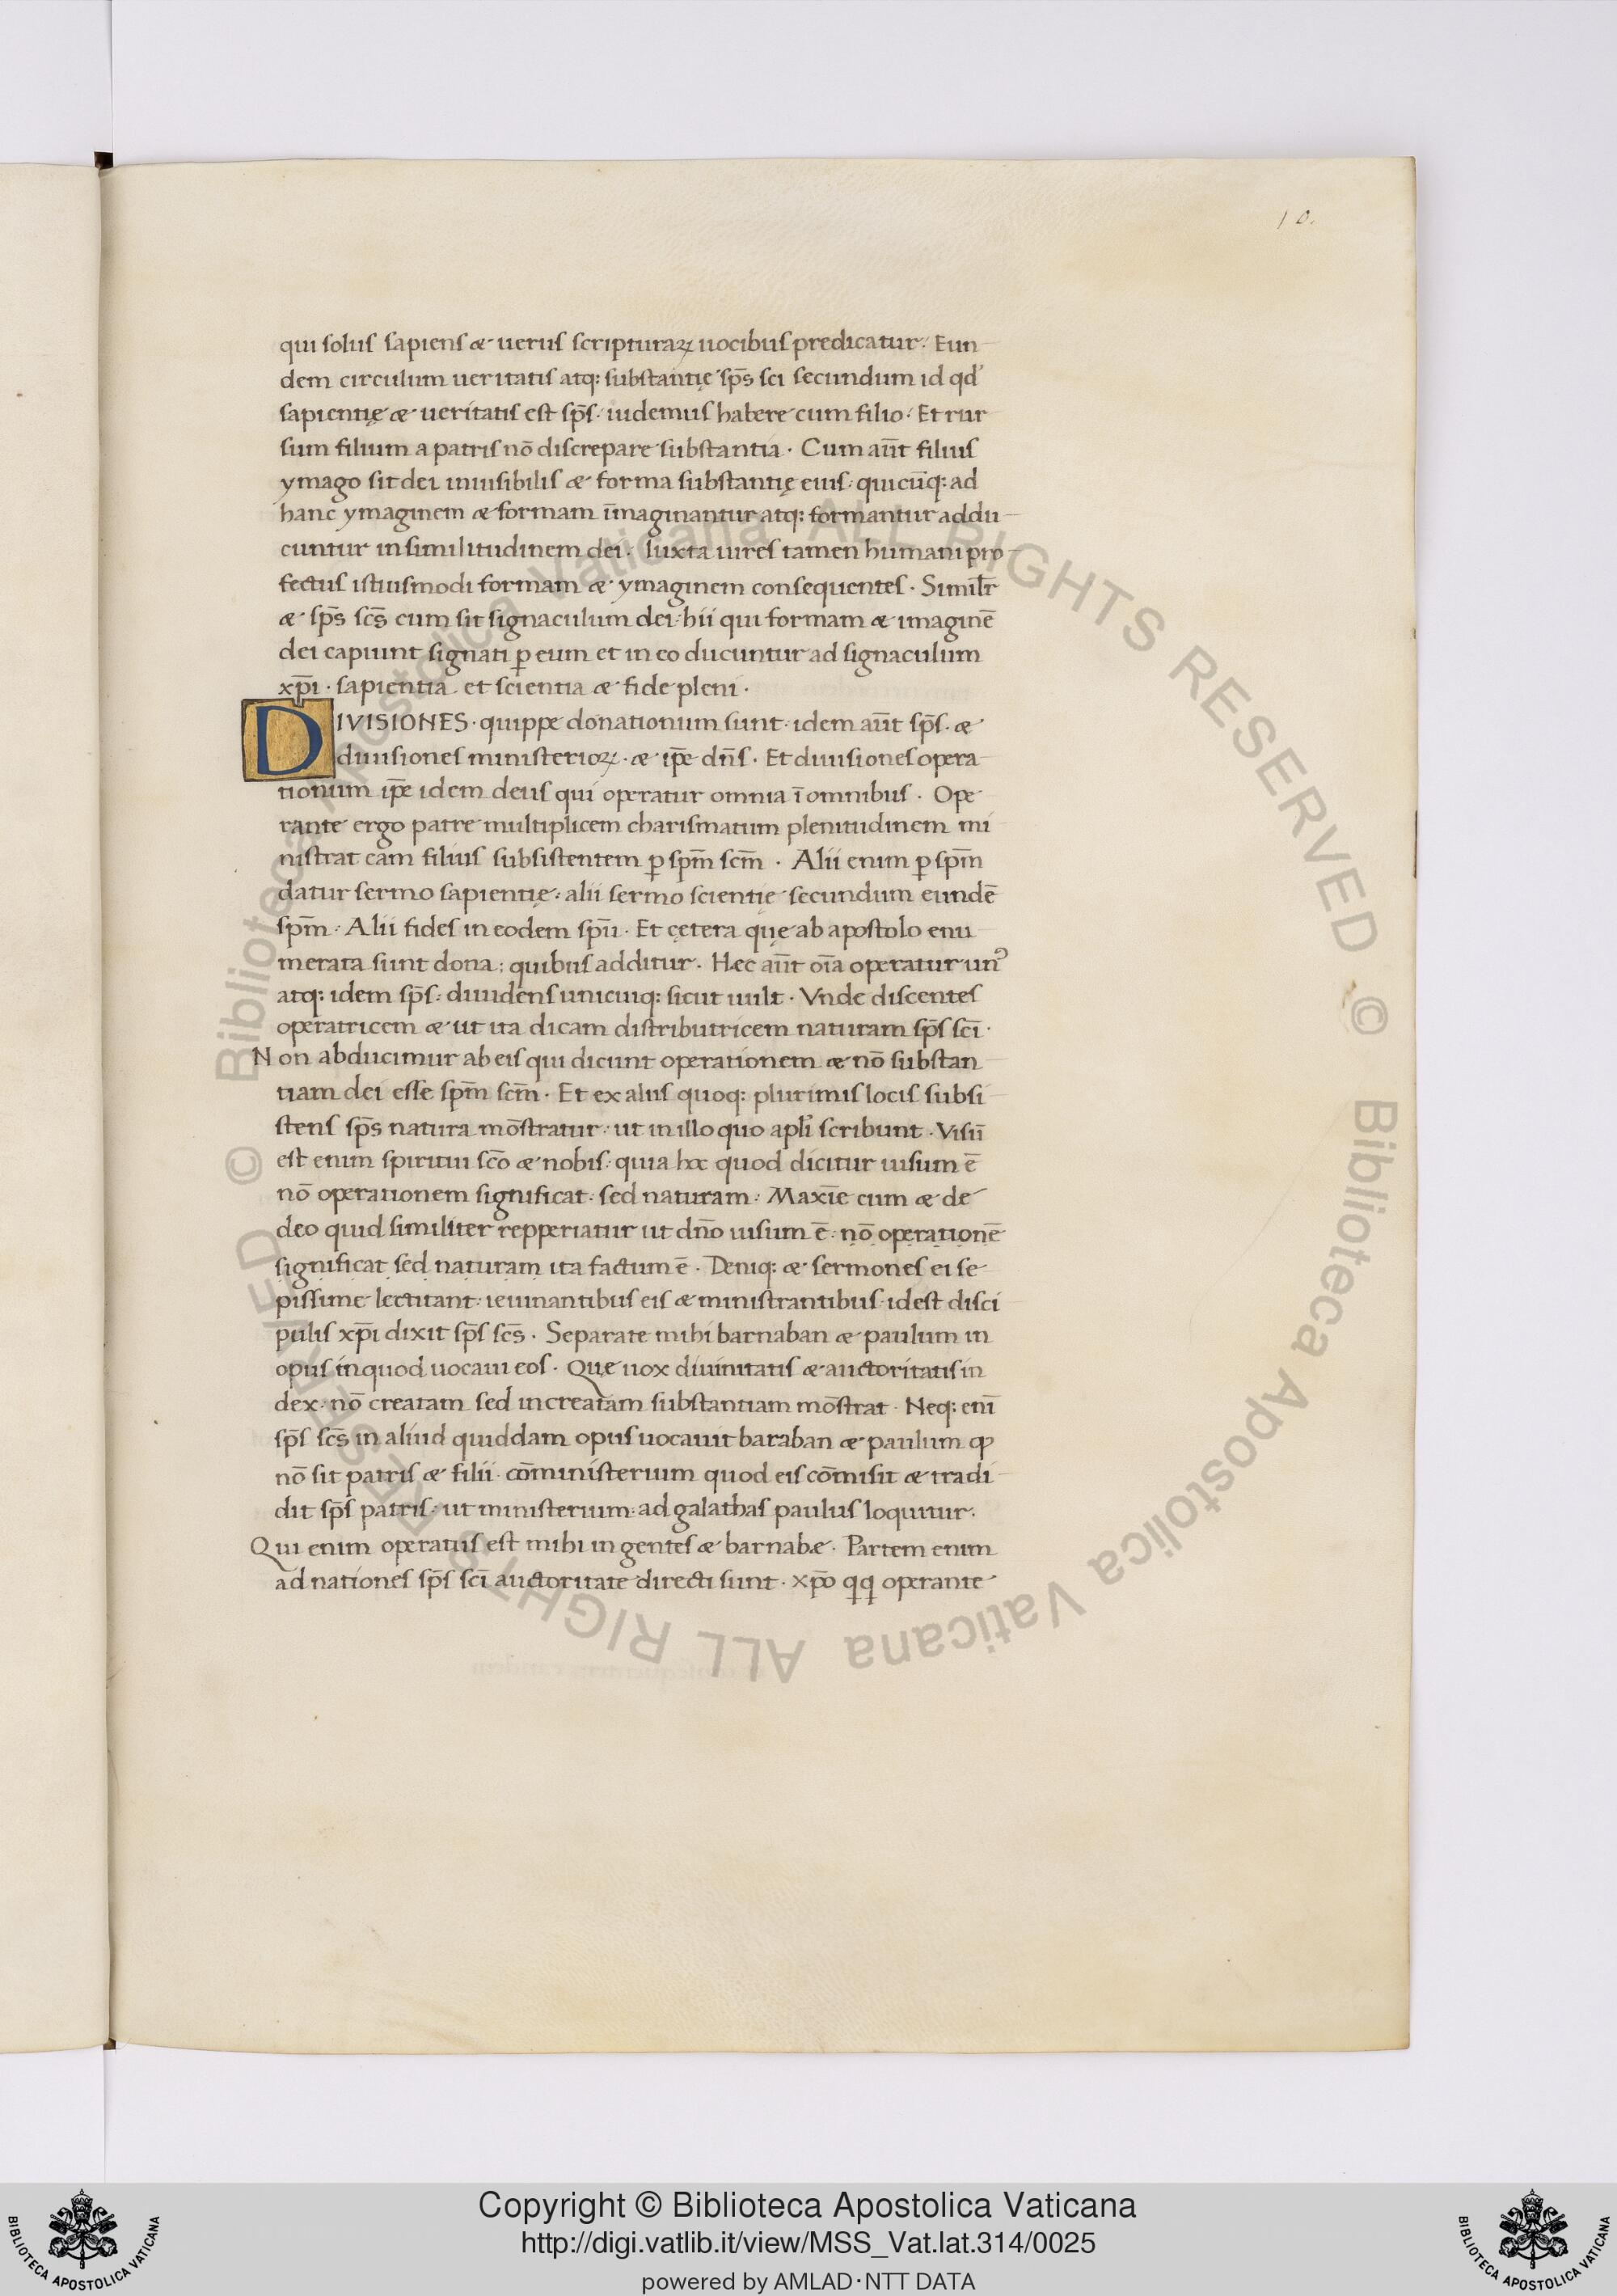 10.
qui solus sapiens æ uerus scripturaꝝ uocibus predicatur. Eun
dem circulum ueritatis atq: substantię sp̄s sci secundum id qd
sapientię æ ueritatis est sp̄s. iudemus habere cum filio. Et rur
sum filium a patris nō discrepare substantia. Cum aūt filius
ymago sit dei inuisibilis æ forma substantię eius: quicūq: ad
hanc ymaginem æ formam īmaginantur atq: formantur addu
cuntur in similitudinem dei. Iuxta uires tamen humani pro
fectus istiusmodi formam æ ymaginem consequentes. Similr̄
æ sp̄s scs̄ cum sit signaculum dei. hii qui formam æ imaginē
dei capiunt signati ꝑ eum et in eo ducuntur ad signaculum
xp̄i. sapientia. et scientia æ fide pleni.
DIVISIONES. quippe donationum sunt. idem aūt sp̄s. æ
diuisiones ministerioꝝ. æ ip̄e dn̄s. Et diuisiones opera
tionum ip̄e idem deus qui operatur omnia ī omnibus. Ope
rante ergo patre multiplicem charismatum plenitudinem mi
nistrat eam filius subsistentem ꝑ spm̄ scm̄. Alii enim ꝑ spm̄
datur sermo sapientię: alii sermo scientię secundum eundē
spm̄. Alii fides in eodem spū. Et cętera quę ab apostolo enu
merata sunt dona: quibus additur. Hæc aūt oīa operatur unꝰ
atq: idem sp̄s: diuidens unicuiq: sicut uult. Vnde discentes
operatricem æ ut ita dicam distributricem naturam sp̄s scī.
Non abducimur ab eis qui dicunt operationem æ nō substan
tiam dei esse spm̄ scm̄. Et ex aliis quoq: plurimis locis subsi
stens sp̄s natura mōstratur: ut in illo quo apl̄i scribunt. Visū
est enim spiritui scō æ nobis: quia hoc quod dicitur uisum ē
nō operationem significat: sed naturam: Maxīe cum æ de
deo quid similiter repperiatur ut dn̄o uisum ē: nō operationē
significat sed naturam ita factum ē. Deniq: æ sermones ei se
pissime lectitant: ieiunantibus eis æ ministrantibus: idest disci
pulis xp̄i dixit sp̄s scs̄. Separate mihi barnaban æ paulum in
opus in quod uocaui eos. Quę uox diuinitatis æ auctoritatis in
dex: nō creatam sed increatam substantiam mōstrat. Neq: enī
sp̄s scs̄ in aliud quiddam opus uocauit baraban æ paulum ꝙ
nō sit patris æ filii. cōministerium quod eis cōmisit æ tradi
dit sp̄s patris: ut ministerium: ad galathas paulus loquitur.
Qui enim operatus est mihi in gentes æ barnabæ. Partem enim
ad nationes sp̄s scī auctoritate directi sunt. xp̄o qq operante
© Biblioteca Apostolica Vaticana ALL RIGHTS RESERVED © Biblioteca Apostolica Vaticana ALL RIGHTS RESERVED
BIBLIOTECA APOSTOLICA VATICANA
Copyright © Biblioteca Apostolica Vaticana
http://digi.vatlib.it/view/MSS_Vat.lat.314/0025
powered by AMLAD・NTT DATA
BIBLIOTECA APOSTOLICA VATICANA